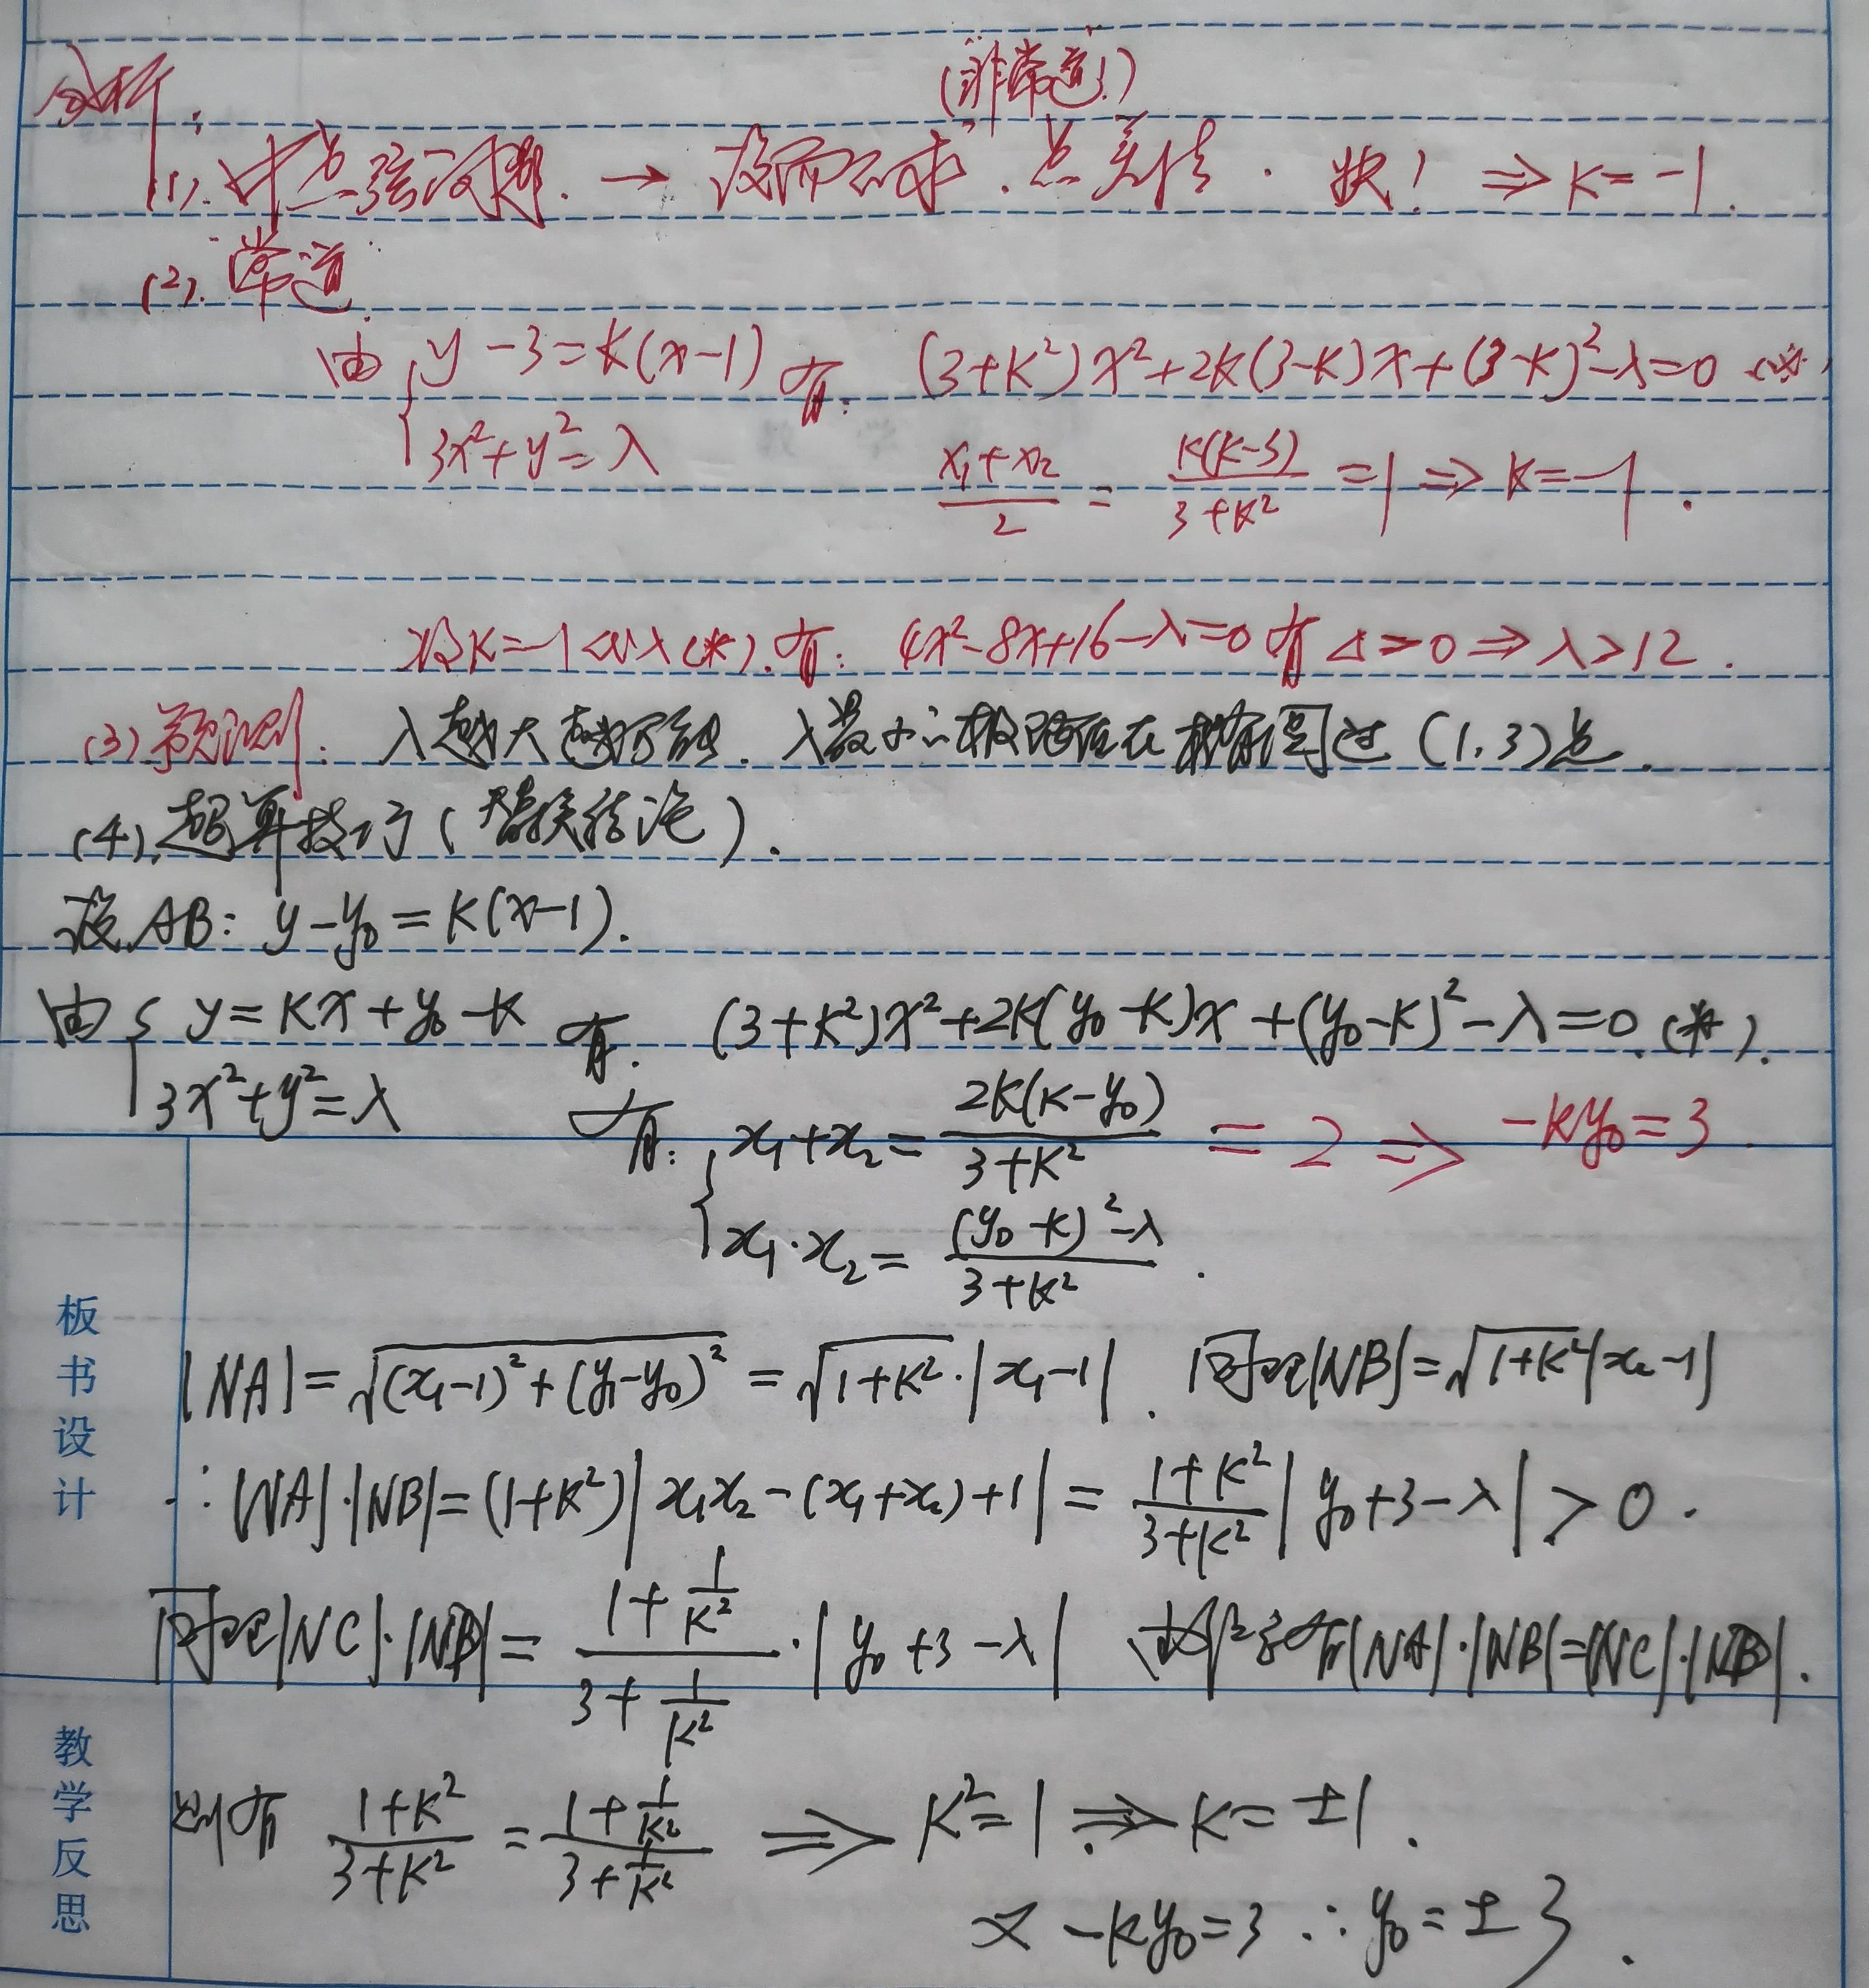 分析:
(非常道!)
(1). 中点弦问题. → 设而不求. 点差法. 快! ⇒ K=-1.
(2). 常道.
由 { y-3=k(x-1) 有: (3+K²)x²+2K(3-K)x+(3-K)²-λ=0 (*)
3x²+y²=λ
(x₁+x₂)/2 = K(K-3)/(3+K²) =1 ⇒ K=-1.
将K=-1代入(*).有: 4x²-8x+16-λ=0 有 Δ>0 ⇒ λ>12.
(3) 预测: λ越大越好, λ最小的极限在椭圆过(1,3)点.
(4). 超算技巧( 结论).
设AB: y-y₀=K(x-1).
由 { y=Kx+y₀-K 有. (3+K²)x²+2K(y₀-K)x+(y₀-K)²-λ=0.(*).
3x²+y²=λ
有: { x₁+x₂= 2K(K-y₀)/(3+K²) = 2 ⇒ -Ky₀=3.
x₁·x₂= ((y₀-K)²-λ)/(3+K²).
|NA|=√((x₁-1)²+(y₁-y₀)²) = √(1+K²)·|x₁-1|. 同理|NB|=√(1+K²)|x₂-1|
∴|NA|·|NB|=(1+K²)|x₁x₂-(x₁+x₂)+1| = (1+K²)/(3+K²)|y₀+3-λ|>0.
同理|NC|·|ND|= (1+1/K²)/(3+1/K²)·|y₀+3-λ| 有|NA|·|NB|=|NC|·|ND|.
则有 (1+K²)/(3+K²) = (1+1/K²)/(3+1/K²) ⇒ K²=1 ⇒ K=±1.
又 -Ky₀=3 ∴y₀=±3.
板书设计
教学反思